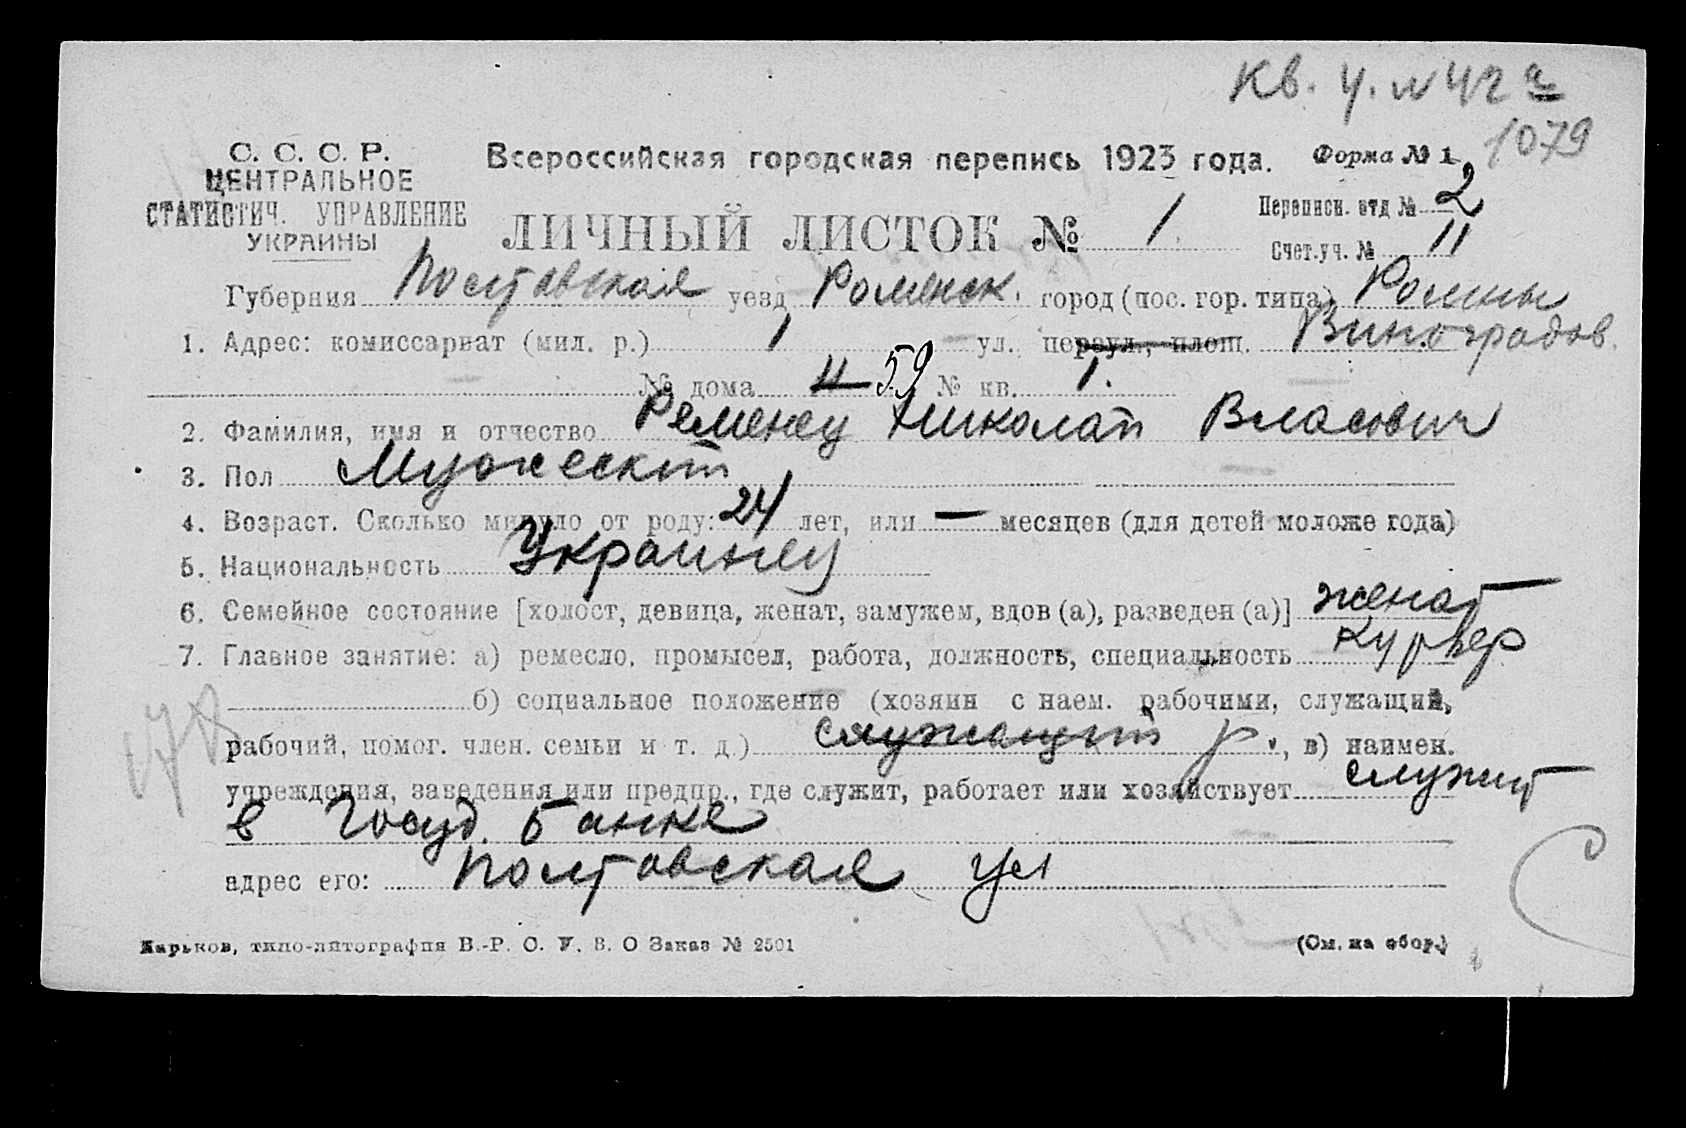 Кв. У. № 42 а
1079
С. С. С. Р.
ЦЕНТРАЛЬНОЕ
СТАТИСТИЧ. УПРАВЛЕНИЕ
УКРАИНЫ
Всероссийская городская перепись 1923 года. Форма № 1
Переписн. отд № 2
ЛИЧНЫЙ ЛИСТОК № 1
Счет.уч. № 11
Губерния Полтавская уезд Роменск. город (пос. гор. типа) Ромны
1. Адрес: комиссариат (мил. р.) 1 ул. переул., площ. Виноградов.
№ дома 11 59 № кв. 1.
2. Фамилия, имя и отчество Ременец Николай Власович
3. Пол Мужеский
4. Возраст. Сколько минуло от роду: 24 лет, или — месяцев (для детей моложе года)
5. Национальность Украинец
6. Семейное состояние [холост, девица, женат, замужем, вдов (а), разведен (а)] женат
7. Главное занятие: а) ремесло, промысел, работа, должность, специальность курьер
б) социальное положение (хозяин с наем. рабочими, служащий,
рабочий, помог. член. семьи и т. д.) служащий р., в) наимен.
учреждения, заведения или предпр., где служит, работает или хозяйствует служит
в Госуд. Банке
адрес его: Полтавская ул
Харьков, типо-литография В.-Р. С. У. В. О Заказ № 2501
(См. на обор.)